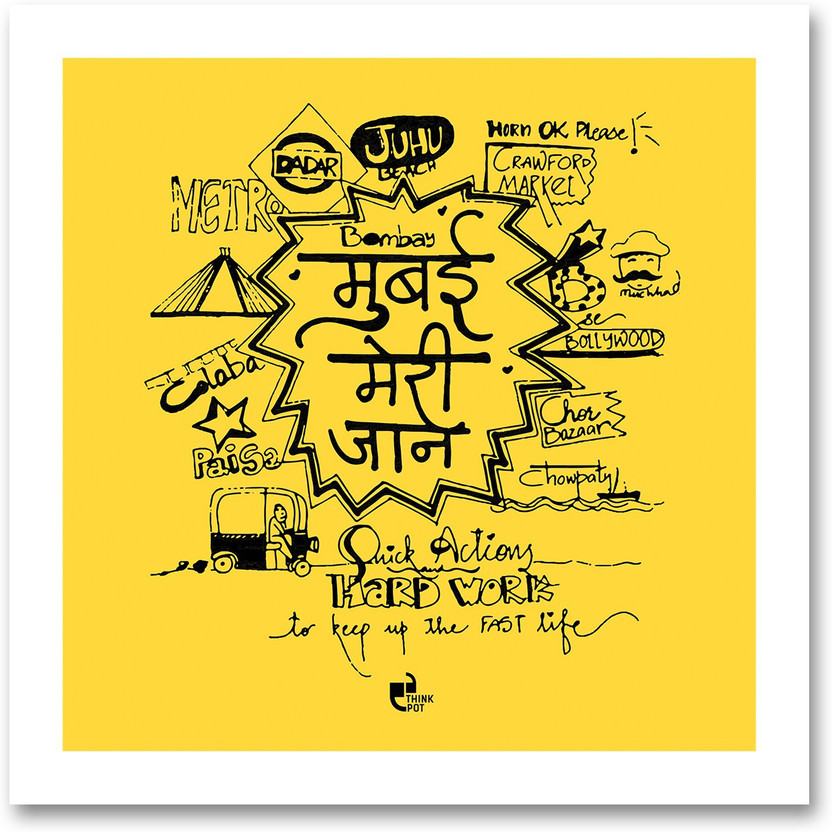 JUHU
BEACH
DADAR
METRO
HORN OK Please!
CRAWFORD
MARKET
Bombay
मुबई
मेरी
जान
B
muchhad
se
BOLLYWOOD
Colaba
Paisa
Chor
Bazaar
Chowpaty
Quick Actions
and
HARD WORK
to keep up the FAST life
THINK
POT